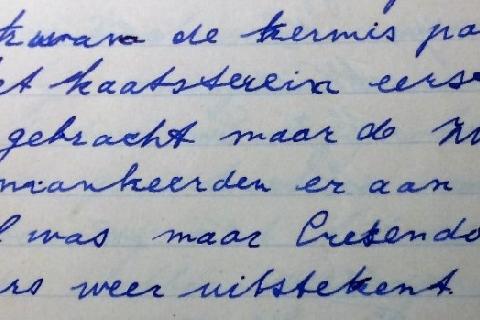 kwam de kermis
kaatsterein eers
gebracht maar de
mankeerden er aan
was maar Cresendo
weer uitstekent